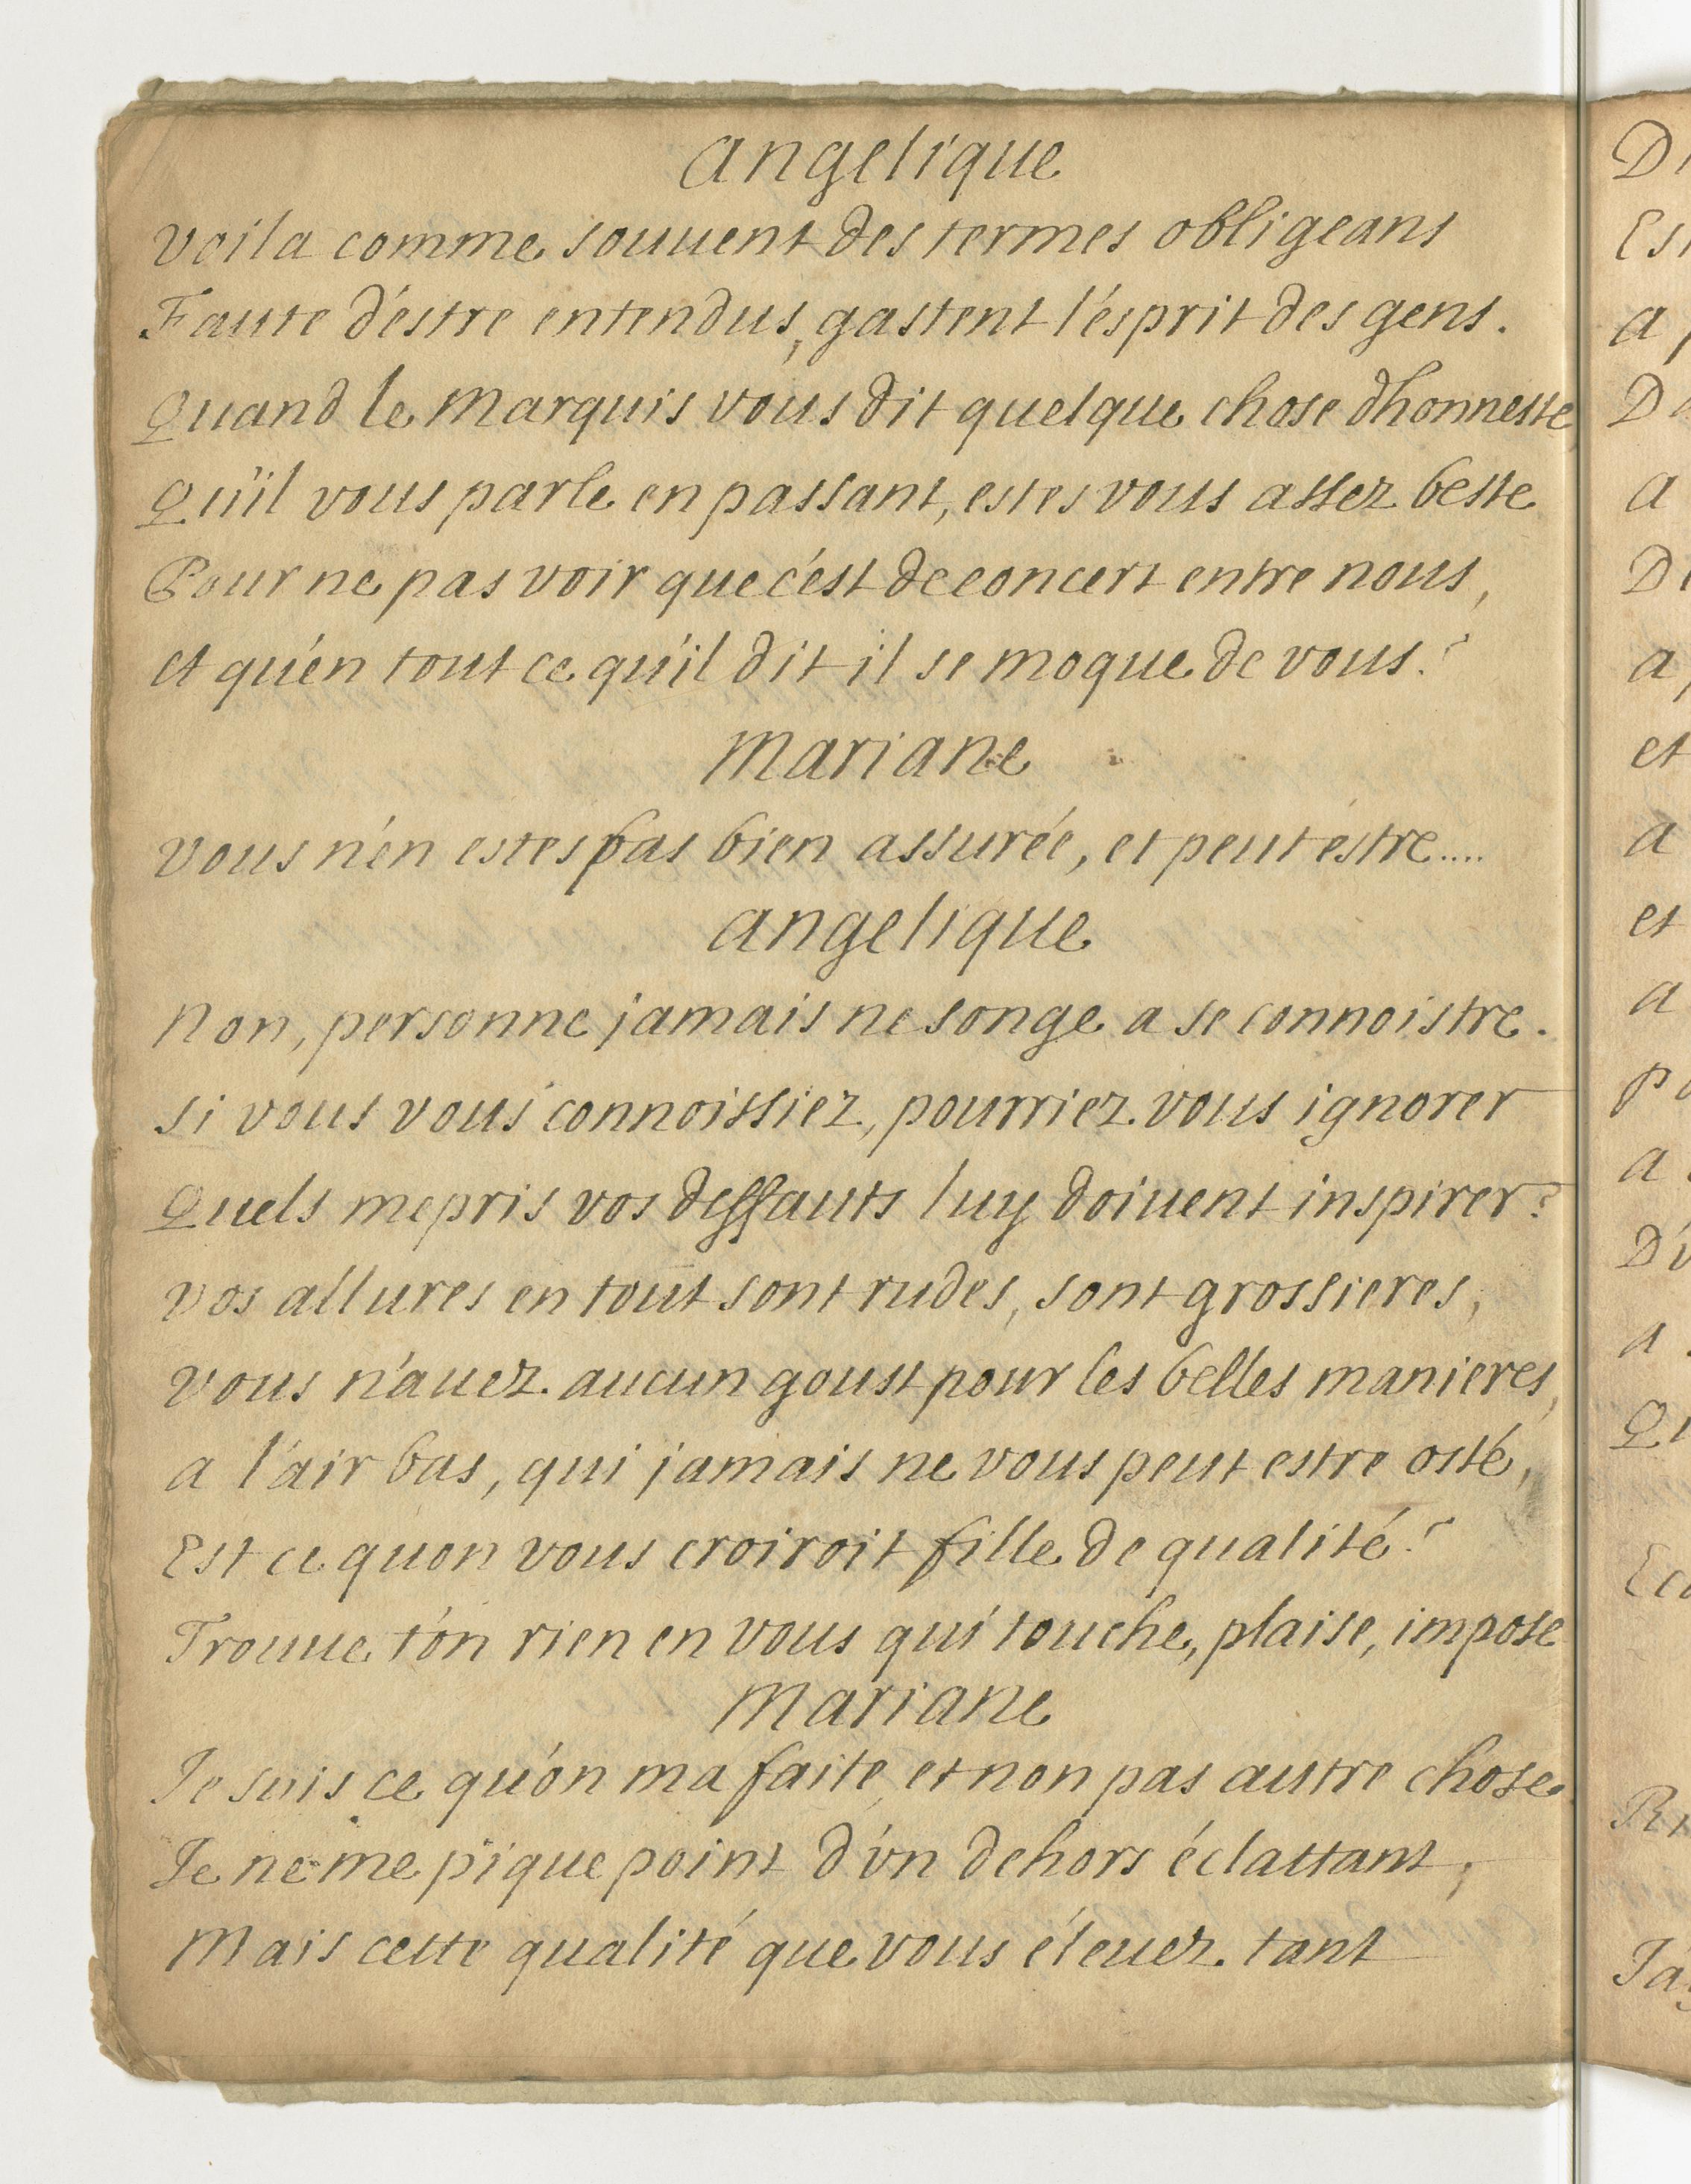 Angelique
Voila comme souuent des termes obligeans
Faute d'éstre entendus, gastent l'ésprit des gens.
Quand le Marquis vous dit quelque chose dhonneste
Qu'il vous parle en passant, estes vous assez beste
Pour ne pas voir que c'ést de concert entre nous,
et qu'én tout ce qu'il dit il se moque de vous?
Mariane
Vous n'én estes pas bien assurée, et peut éstre....
Angelique
Non, personne jamais ne songe a se connoistre.
Si vous vous connoissiez, pourriez vous ignorer
Quels mepris vos deffauts luy doiuent inspirer?
Vos allures en tout sont rudes, sont grossieres,
Vous n'auez aucun goust pour les belles manieres,
a l'air bas, qui jamais ne vous peut estre osté,
Est ce quon vous croiroit fille de qualité?
Trouue t'ón rien en vous qui touche, plaise, impose
Mariane
Je suis ce qu'ón ma faite, et non pas autre chose
Je ne me pique point d'vn dehors éclattant,
Mais cette qualité que vous éleuez tant
D
Est
a
D
a
D
a
et
a
et
a
P
a
D'v
a
Q
Ri